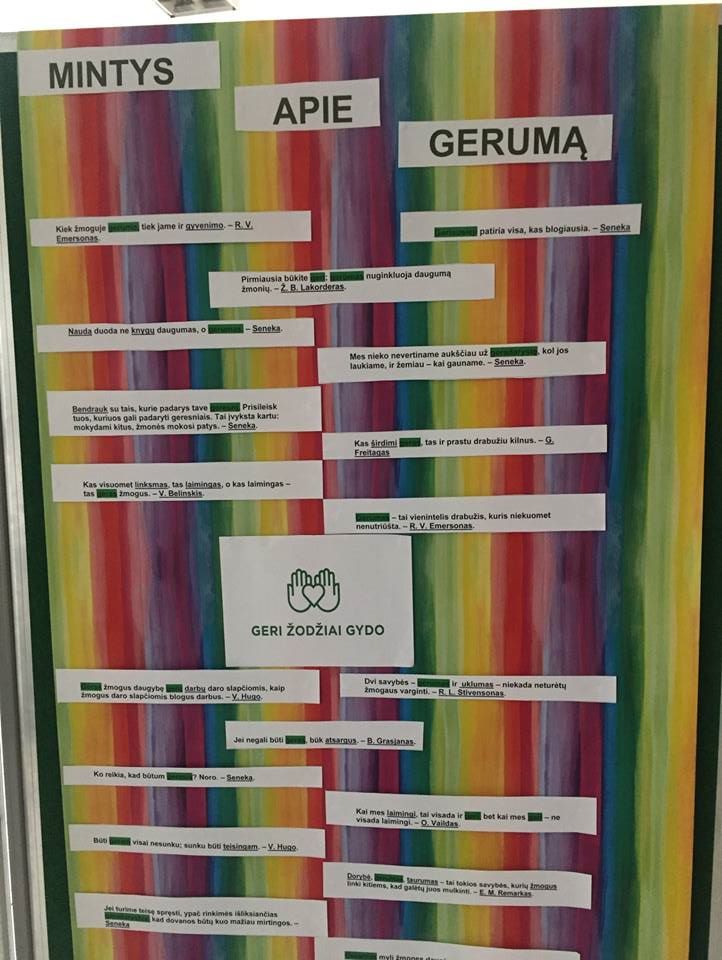 MINTYS
APIE
GERUMĄ
Kiek žmoguje gerumo, tiek jame ir gyvenimo. – R. V.
Emersonas.
patiria visa, kas blogiausia. – Seneka
Pirmiausia būkite geri; gerumas nuginkluoja daugumą
žmonių. – Ž. B. Lakorderas.
Nauda duoda ne knygų daugumas, o gerumas. – Seneka.
Mes nieko nevertiname aukščiau už geradarystę, kol jos
laukiame, ir žemiau – kai gauname. – Seneka.
Bendrauk su tais, kurie padarys tave geresnį. Prisileisk
tuos, kuriuos gali padaryti geresniais. Tai įvyksta kartu:
mokydami kitus, žmonės mokosi patys. – Seneka.
Kas širdimi geras, tas ir prastu drabužiu kilnus. – G.
Freitagas
Kas visuomet linksmas, tas laimingas, o kas laimingas –
tas geras žmogus. – V. Belinskis.
Gerumas – tai vienintelis drabužis, kuris niekuomet
nenutriūšta. – R. V. Emersonas.
GERI ŽODŽIAI GYDO
Geras žmogus daugybę gerų darbų daro slapčiomis, kaip
žmogus daro slapčiomis blogus darbus. – V. Hugo.
Dvi savybės – gerumas ir uklumas – niekada neturėtų
žmogaus varginti. – R. L. Stivensonas.
Jei negali būti geras, būk atsargus. – B. Grasjanas.
Ko reikia, kad būtum geresnis? Noro. – Seneka.
Kai mes laimingi, tai visada ir geri, bet kai mes geri – ne
visada laimingi. – O. Vaildas.
Būti geram visai nesunku; sunku būti teisingam. – V. Hugo.
Dorybė, gerumas, taurumas – tai tokios savybės, kurių žmogus
linki kitiems, kad galėtų juos mulkinti. – E. M. Remarkas.
Jei turime teisę spręsti, ypač rinkimės išliksiančias
kad dovanos būtų kuo mažiau mirtingos. –
Seneka
myli žmones